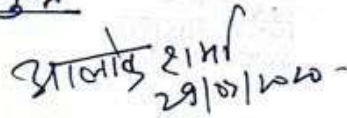 आलोक शर्मा
29/07/2020